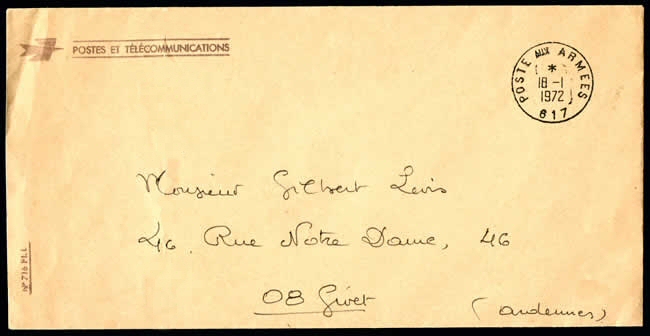 POSTES ET TÉLÉCOMMUNICATIONS
POSTE AUX ARMEES
*
18-1
1972
617
Monsieur Gilbert Levis
46 Rue Notre Dame, 46
08 Givet
(Ardennes)
Nº 716 PLI.